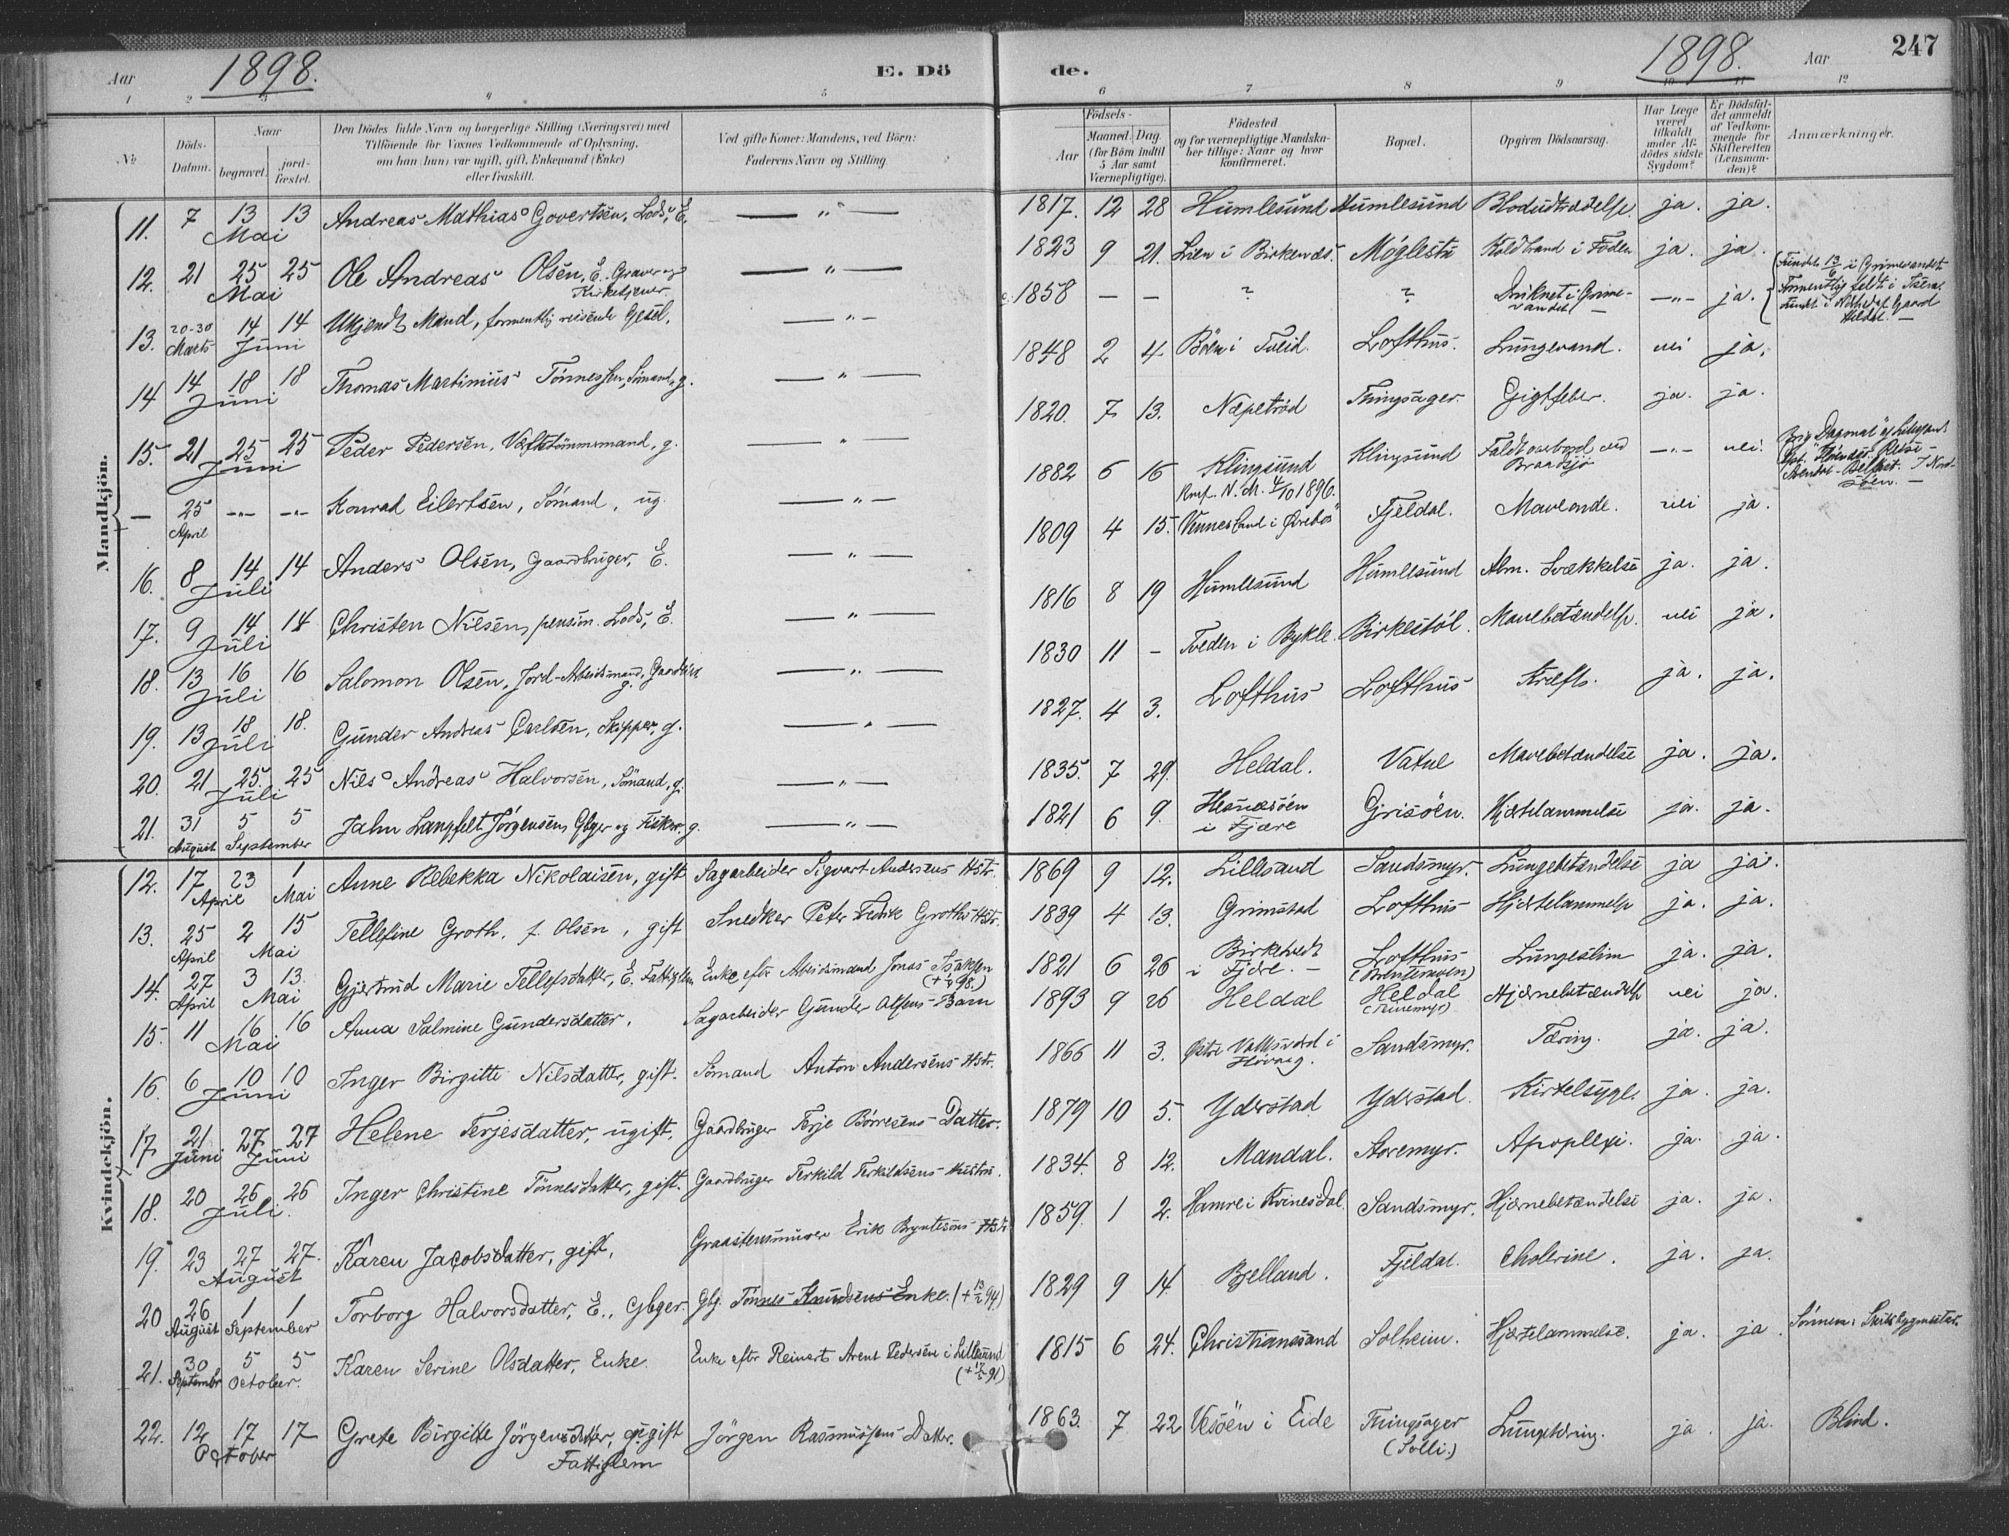 Aar 1898. E. Dö
de. 1898. Aar 247
1 2 3 4 5
6 7 8 9 10 11 12
№ Döds-Datum. Naar begravet. jord-fæstet. Den Dödes fulde Navn og borgerlige Stilling (Næringsvei) med Tilföiende for Voxnes Vedkommende af Oplysning, om han (hun) var ugift, gift, Enkemand (Enke) eller fraskilt. Ved gifte Koner: Mandens, ved Börn: Faderens Navn og Stilling.
Födsels- Aar Maaned. Dag. (for Börn indtil 5 Aar samt Værnepligtige). Födested og for værnepligtige Mandskaber tillige: Naar og hvor konfirmeret. Bopæl. Opgiven Dödsaarsag. Har Læge været tilkaldt under Afdödes sidste Sygdom? Er Dödsfaldet anmeldt af Vedkommende for Skifteretten (Lensmanden)? Anmærkninger.
Mandkjön.
11. 7 13 13 Mai Andreas Mathias Govertsen, Lods, E. — " — 1817. 12 28 Humlesund Humlesund Blodudtrædelse ja. ja.
12. 21 25 25 Mai Ole Andreas Olsen, E. Graver og Kirketjener. — " — 1823 9 21. Lien i Birkenæs. Möglestu Koldbrand i Foden ja. ja.
13. 20-30 Marts 14 14 Juni Ukjendt Mand, formentlig reisende Gesel. — " — c. 1858 — — ? ? Druknet i Grimevandet — " — ja. Fundet 13/6 i Grimevandet.
14 14 18 18 Juni Thomas Martinius Tönnessen, Sömand, g. — " — 1848 2 4. Böen i Tveid. Lofthus. Lungevand. nei ja.
15. 21 25 25 Juni Peder Pedersen, Værftstömmermand, g. — " — 1820. 7 13. Næpetrød Tingsager. Gigtfeber. ja. ja.
— 25 April — " — — " — Konrad Eilertsen, Sömand, ug. — " — 1882 6 16 Klingsund Konf. N. M. 4/10 1896. Klingsund Faldt overbord — " — nei. Brig "Dagmar" af Lillesand
16. 8 14 14 Juli Anders Olsen, Gaardbruger, E. — " — 1809 4 15. Vennesland i Øvrebø Fjeldal. Maveonde. nei ja.
17. 9 14 14 Juli Christen Nilsen, pension. Lods, E. — " — 1816 8 19 Humlesund Humlesund Alm. Svækkelse ja. ja.
18. 13 16 16 Juli Salomon Olsen, Jord-Arbeidsmand, g. — " — 1830 11 - Tveden i Bykle. Birkestöl. Mavebetændelse. nei ja.
19. 13 18 18. Juli Gunder Andreas Carlsen, Skipper, g. — " — 1827. 4 3. Lofthus Lofthus Kræft. ja. ja.
20. 21 25. 25 Juli Nils Andreas Halvorsen, Sömand, g. — " — 1835. 7 29. Heldal. Vatne Mavebetændelse ja. ja.
21. 31 August 5 5 September Jahn Langfelt Jörgensen, Gbger og Fisker, g. — " — 1821 6 9. Hesnæsöen i Fjære Grisöen. Hjertelammelse ja. ja.
Kvindekjön.
12. 17 23 April 1 Mai Anne Rebekka Nikolaisen, gift Sagarbeider Sigvart Andersens Hstr. 1869 9 12. Lillesand Sandsmyr. Lungebetændelse ja ja.
13. 25 April 2 15 Mai Tellefine Groth, f. Olsen, gift Snedker Peter Fredrik Groths Hstr. 1839 4 13. Grimstad Lofthus Hjertelammelse ja. ja.
14. 27 April 3 13. Mai Gjertrud Marie Tellefsdatter, E. Fattiglem Enke efter Arbeidsmand Jonas Isaksen 1821 6 26 Birketveit i Fjære. — Lofthus Lungeslim ja. ja.
15. 11 16 16 Mai Anna Salmine Gundersdatter. Sagarbeider Gunder Olsens Barn 1893 9 26 Heldal Heldal Hjernebetændelse nei ja.
16. 6 10 10 Juni Inger Birgitte Nilsdatter, gift. Sömand Anton Andersens Hstr. 1866 11 3. Østre Vallesverd i Høvaag. Sandsmyr. Tæring. ja. ja.
17 21 Juni 27 27 Juni Helene Terjesdatter, ugift, Gaardbruger Terje Börresens Datter. 1879 10 5. Yderstad Yderstad. Kirtelsyge. ja. ja.
18. 20 26 26 Juli. Inger Christine Tönnesdatter, gift. Gaardbruger Terkild Terkildsens Hustru. 1834. 8 12. Mandal. Storemyr. Apoplexi. ja. ja.
19. 23 27 27. August Karen Jacobsdatter, gift. Graastensmurer Erik Bryntesens Hstr 1859. 1 2. Hamre i Kvinesdal. Sandsmyr. Hjernebetændelse ja. ja.
20 26 August 1 1 September Torborg Halvorsdatter, E., Gbger. Gbg. Tönnes Knudsens Enke. (+ 13/2 94) 1829 9 14 Bjelland. Fjeldal. Cholerine. ja. ja.
21. 30 September 5 5 October. Karen Serine Olsdatter, Enke. Enke efter Reinert Arent Pedersen i Lillesand 1815 6 24. Christianssand Solheim. Hjertelammelse. ja. ja. Sönnen: Skibsbygmester
22. 12 17 17 October Grete Birgitte Jörgensdatter, ugift Fattiglem Jörgen Rasmussens Datter. 1863. 7 22 Vesöen i Eide Tingsager (Solli.) Lungetæring. ja. ja. Blind.